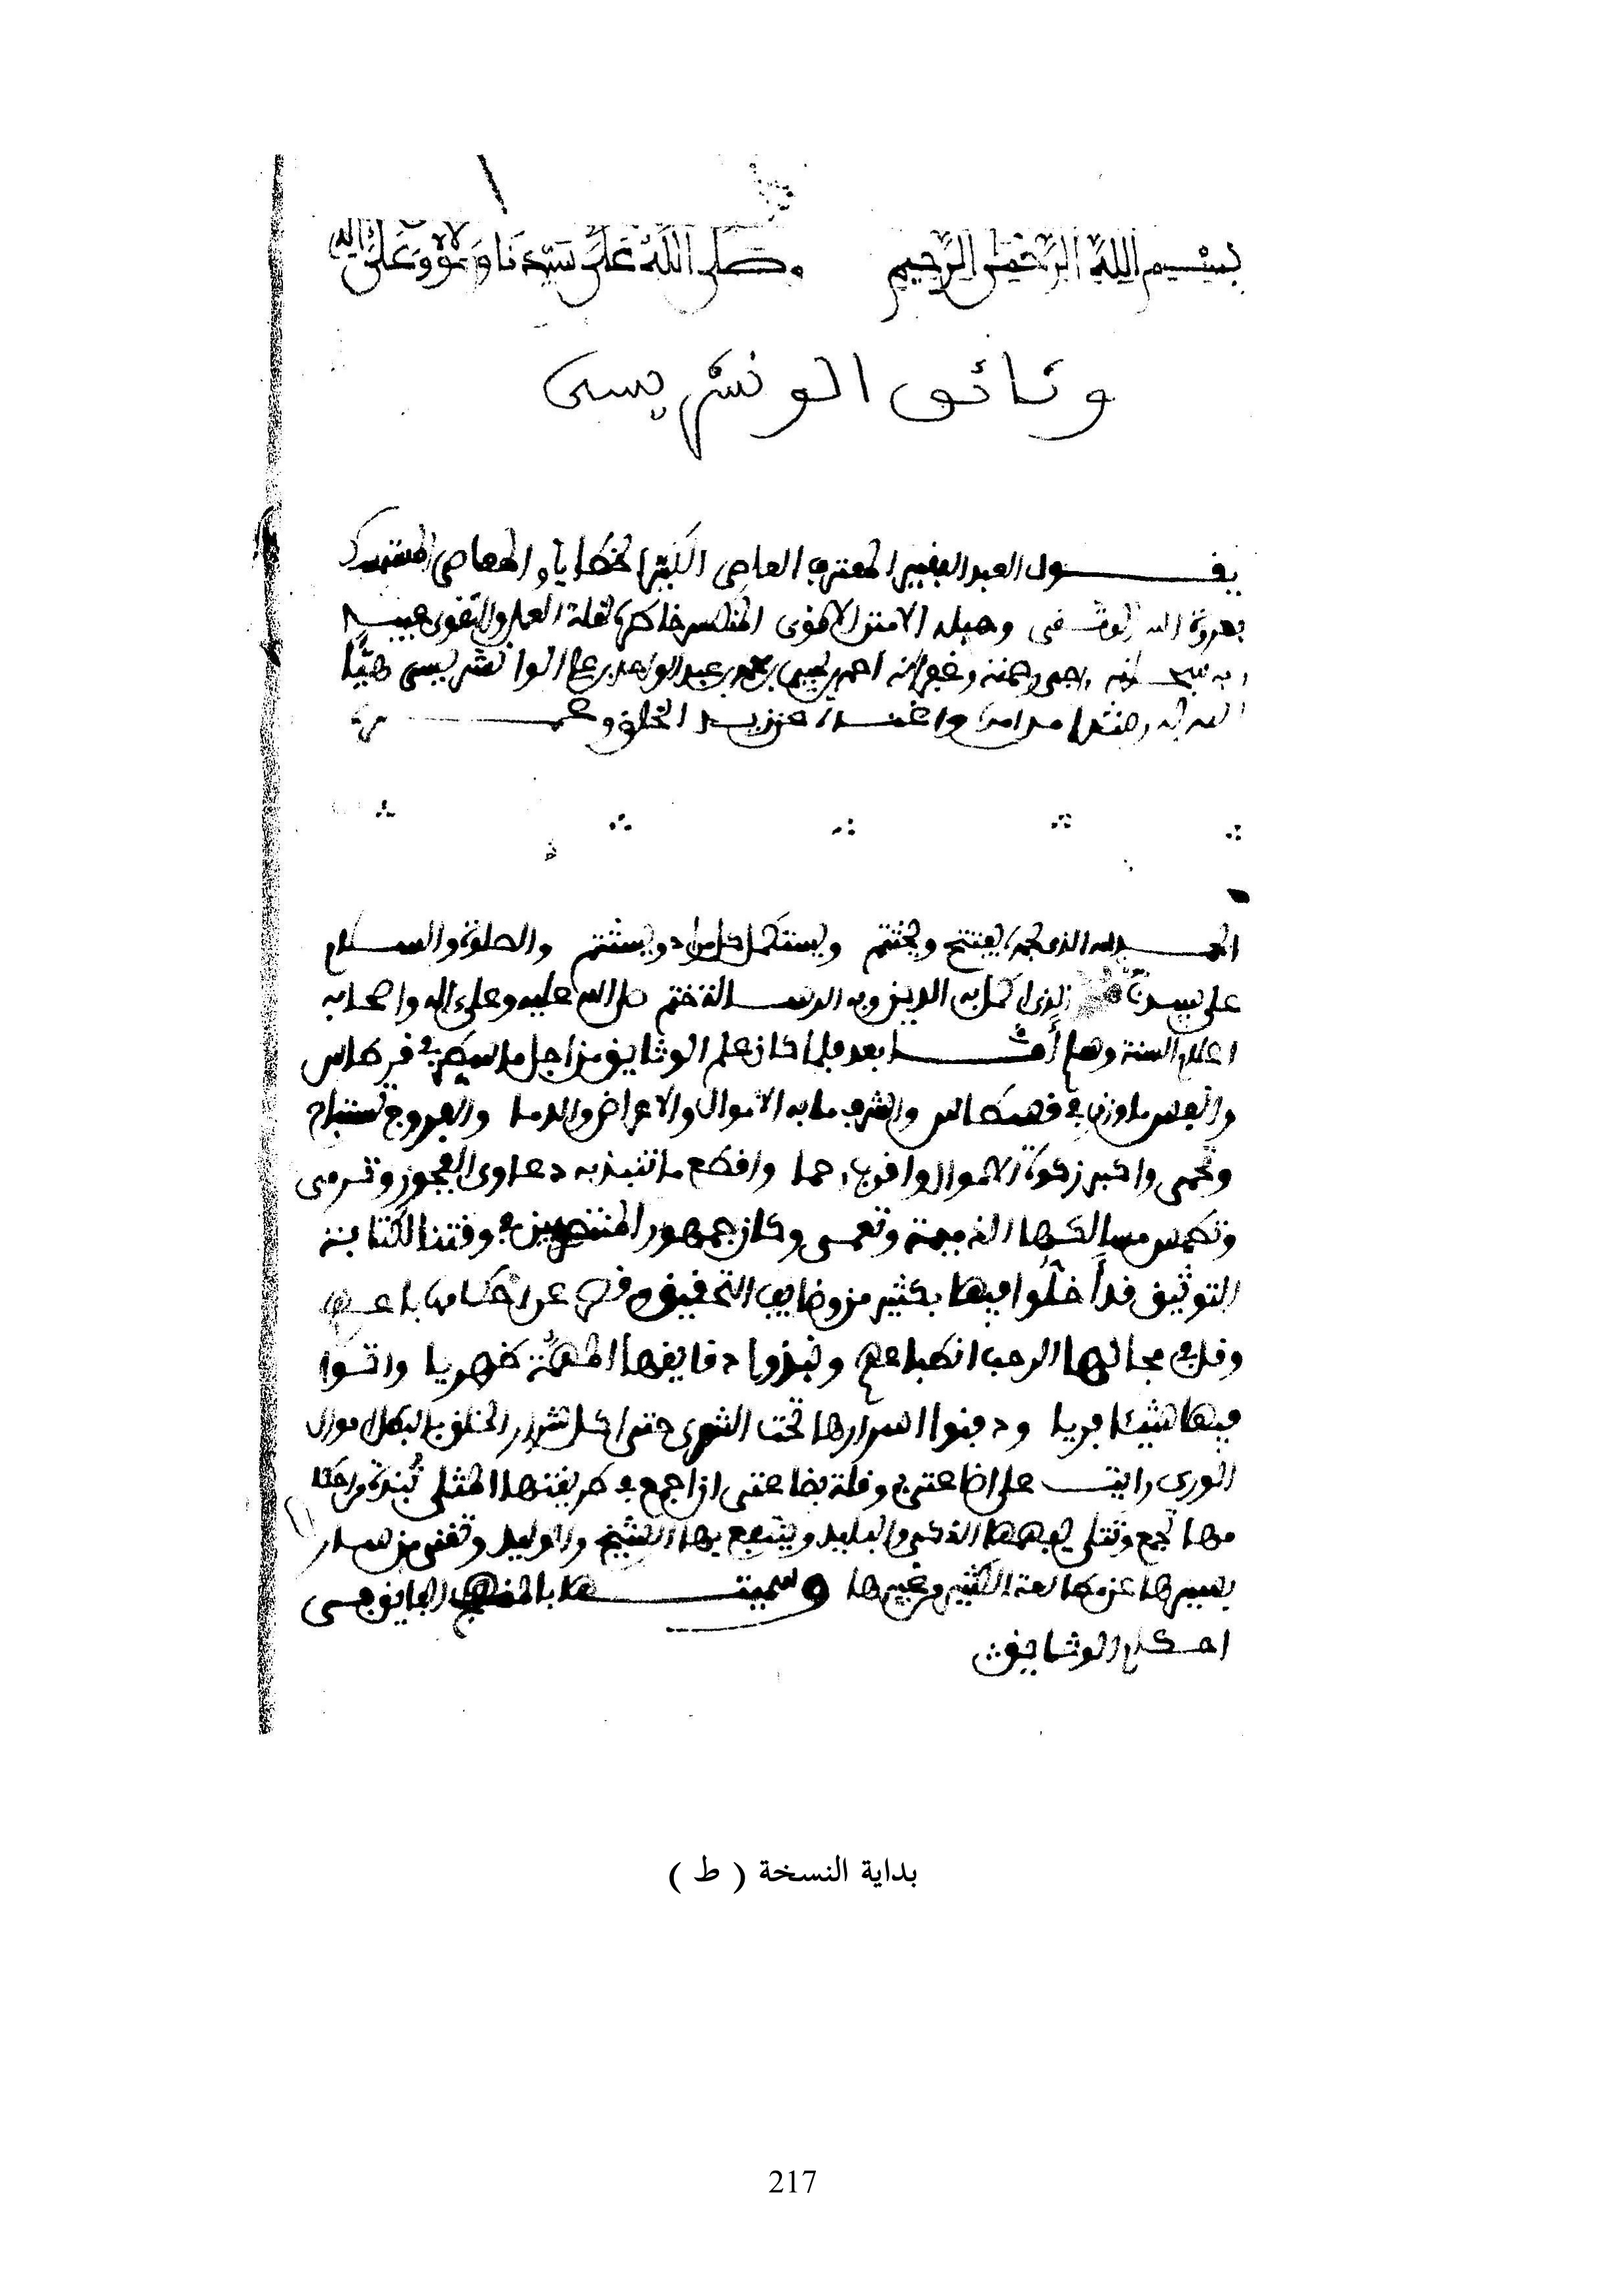 بسم الله الرحمن الرحيم وصلى الله على سيدنا ومولانا وعلى اله
وثائق الونشريسي
يقول العبد الفقير المعترف العاصي الكثير الخطايا والمعاصي المستمسك
بعروة الله الوثقى وحبله الامتن الاقوى المنكسر خاطره لقلة العمل والتقوى عبيد
ربه سبحانه راجي رحمته وغفرانه احمد بن يحيى بن محمد بن عبد الواحد بن علي الوانشريسي هيأ
الله له رشدا من امره واعتمدا عن زيد الخلق
الحمد لله الذي بحمده يفتتح ويختتم ويستكمل كل مراد ويستتم والصلوة والسلام
على سيدنا الذي كمل به الدين وبه الرسالة ختم صلى الله عليه وعلى اله واصحابه
اعلام السنة أما بعد فلما كان علم الوثايق من اجل ما سطر في قرطاس
وانفس ما وزن في قسطاس واشرف ما به الاموال والاعراض والدما والفروج تستباح
وتحمى واكبر زكوة الاموال واقرب رحما واقطع ما تنبذ به دعاوى الفجور وترمى
وتطمس مسالكها الذميمة وتعمى وكان جمهور المنتصبين في وقتنا لكتابة
التوثيق قد أخلّوا فيها بكثير من وظايف التحقيق وقصر عن احكامها باعهم
وقل في مجالها الرحب انطباعهم ونبذوا دقايقها المهمّة ظهريا واتوا
فيها شيئا فريا ودفنوا اسرارها تحت الثرى حتى اكل شرار الخلق بالبطل اموال
الورى رايت على اضاعتي وقلة بضاعتي ان اجمع في طريقتها المثلى نُبذة من احكا
مها تجمع وتتلى يفهمها الذكي والبليد وينتفع بها الشيخ والوليد وتغني من
يسيرها عن مطالعة الكثير وغيرها وسميتها بالمنهج الفايق
احكام الوثايق
بداية النسخة ( ط )
217